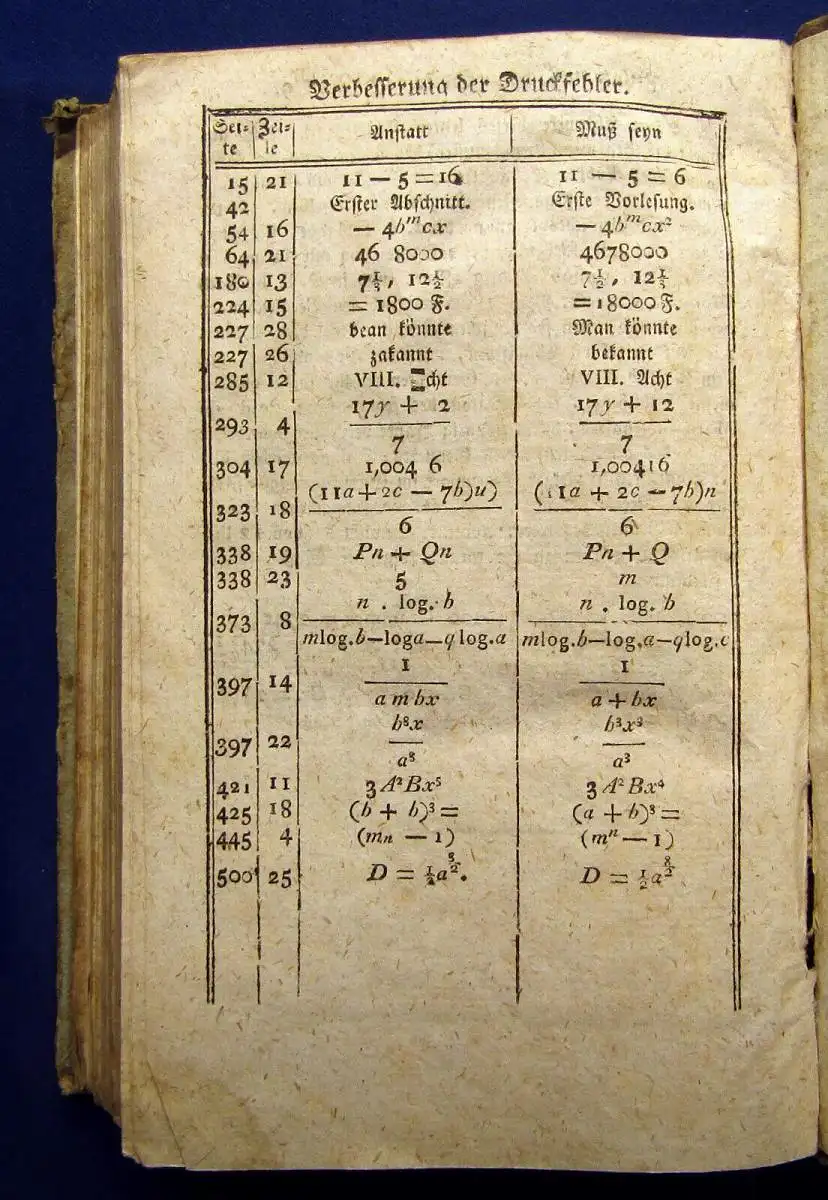 Verbesserung der Druckfehler.
Sei- te | Zei- le | Anstatt | Muß seyn
15 | 21 | 11 — 5 = 16 | 11 — 5 = 6
42 | | Erster Abschnitt. | Erste Vorlesung.
54 | 16 | — 4b^m cx | — 4b^m cx²
64 | 21 | 46 8000 | 4678000
180 | 13 | 7⅓, 12½ | 7½, 12⅓
224 | 15 | = 1800 F. | = 18000 F.
227 | 28 | bean könnte | Man könnte
227 | 26 | zakannt | bekannt
285 | 12 | VIII. cht | VIII. Acht
293 | 4 | 17y + 2 / 7 | 17y + 12 / 7
304 | 17 | 1,004 6 | 1,00416
323 | 18 | (11a + 2c — 7b)u) / 6 | (11a + 2c — 7b)n / 6
338 | 19 | Pn + Qn | Pn + Q
338 | 23 | 5 | m
373 | 8 | n . log. b / mlog.b—loga—qlog.a | n . log. b / mlog.b—log.a—qlog.c
397 | 14 | 1 / a m bx | 1 / a + bx
397 | 22 | b⁸x / a⁸ | b³x³ / a³
421 | 11 | 3A²Bx⁵ | 3A²Bx⁴
425 | 18 | (b + b)³ = | (a + b)³ =
445 | 4 | (mn — 1) | (mⁿ — 1)
500 | 25 | D = ½a^3/2. | D = ½a^3/2